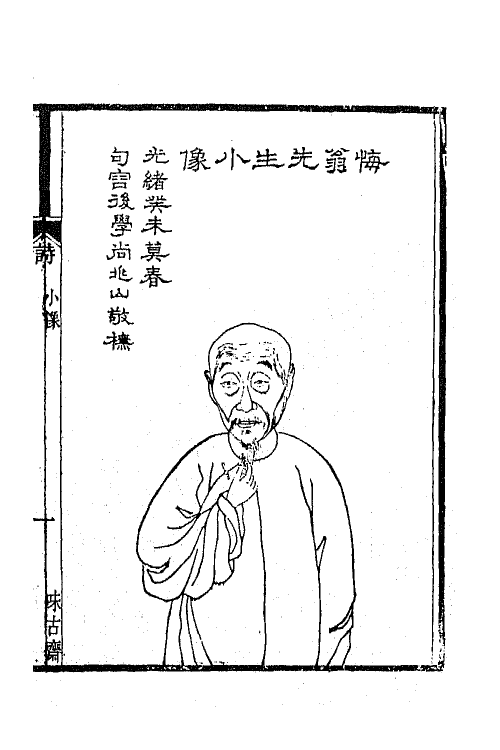 悔翁先生小像
光緒癸未莫春
句容後學尚兆山敬橅
詩
小像
一
味古齋